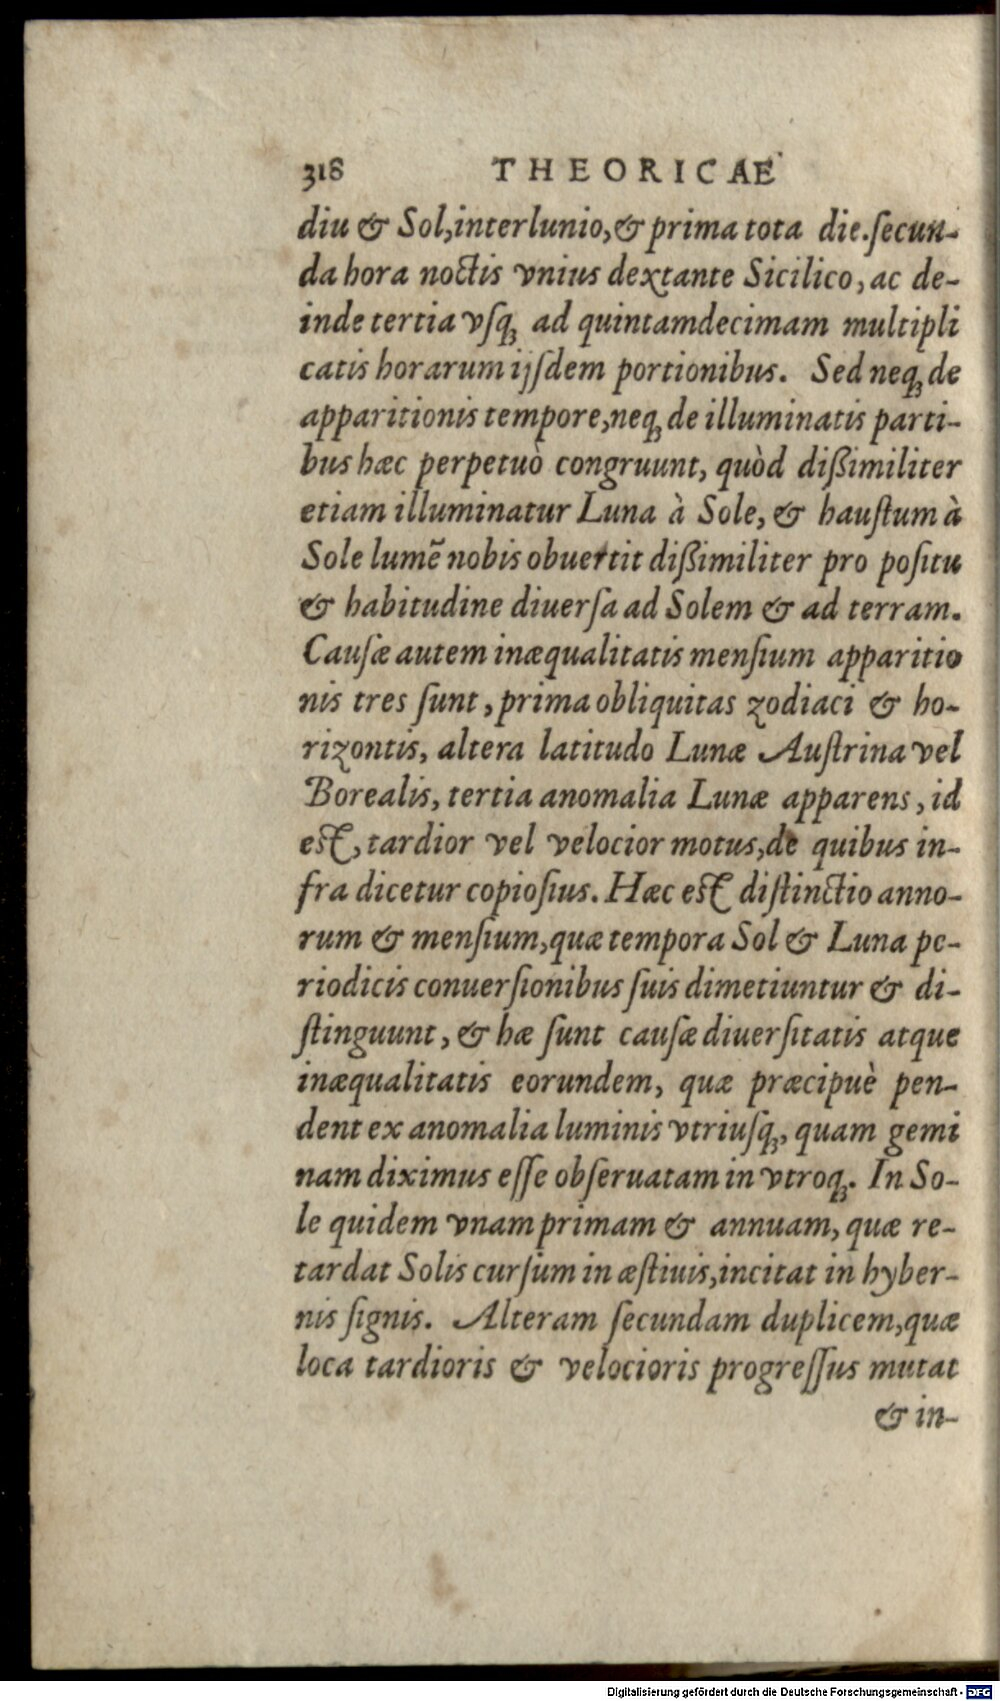 318 THEORICAE
diu & Sol, interlunio, & prima tota die. ſecun-
da hora noctis vnius dextante Sicilico, ac de-
inde tertia vſq́; ad quintamdecimam multipli
catis horarum ijſdem portionibus. Sed neq́; de
apparitionis tempore, neq́; de illuminatis parti-
bus hæc perpetuò congruunt, quòd dißimiliter
etiam illuminatur Luna à Sole, & hauſtum à
Sole lumē nobis obuertit dißimiliter pro poſitu
& habitudine diuerſa ad Solem & ad terram.
Cauſæ autem inæqualitatis menſium apparitio
nis tres ſunt, prima obliquitas zodiaci & ho-
rizontis, altera latitudo Lunæ Auſtrina vel
Borealis, tertia anomalia Lunæ apparens, id
eſt, tardior vel velocior motus, de quibus in-
fra dicetur copioſius. Hæc eſt diſtinctio anno-
rum & menſium, quæ tempora Sol & Luna pe-
riodicis conuerſionibus ſuis dimetiuntur & di-
ſtinguunt, & hæ ſunt cauſæ diuerſitatis atque
inæqualitatis eorundem, quæ præcipuè pen-
dent ex anomalia luminis vtriuſq́;, quam gemi
nam diximus eſſe obſeruatam in vtroq́;. In So-
le quidem vnam primam & annuam, quæ re-
tardat Solis curſum in æſtiuis, incitat in hyber-
nis ſignis. Alteram ſecundam duplicem, quæ
loca tardioris & velocioris progreſſus mutat
& in-
Digitalisierung gefördert durch die Deutsche Forschungsgemeinschaft - DFG